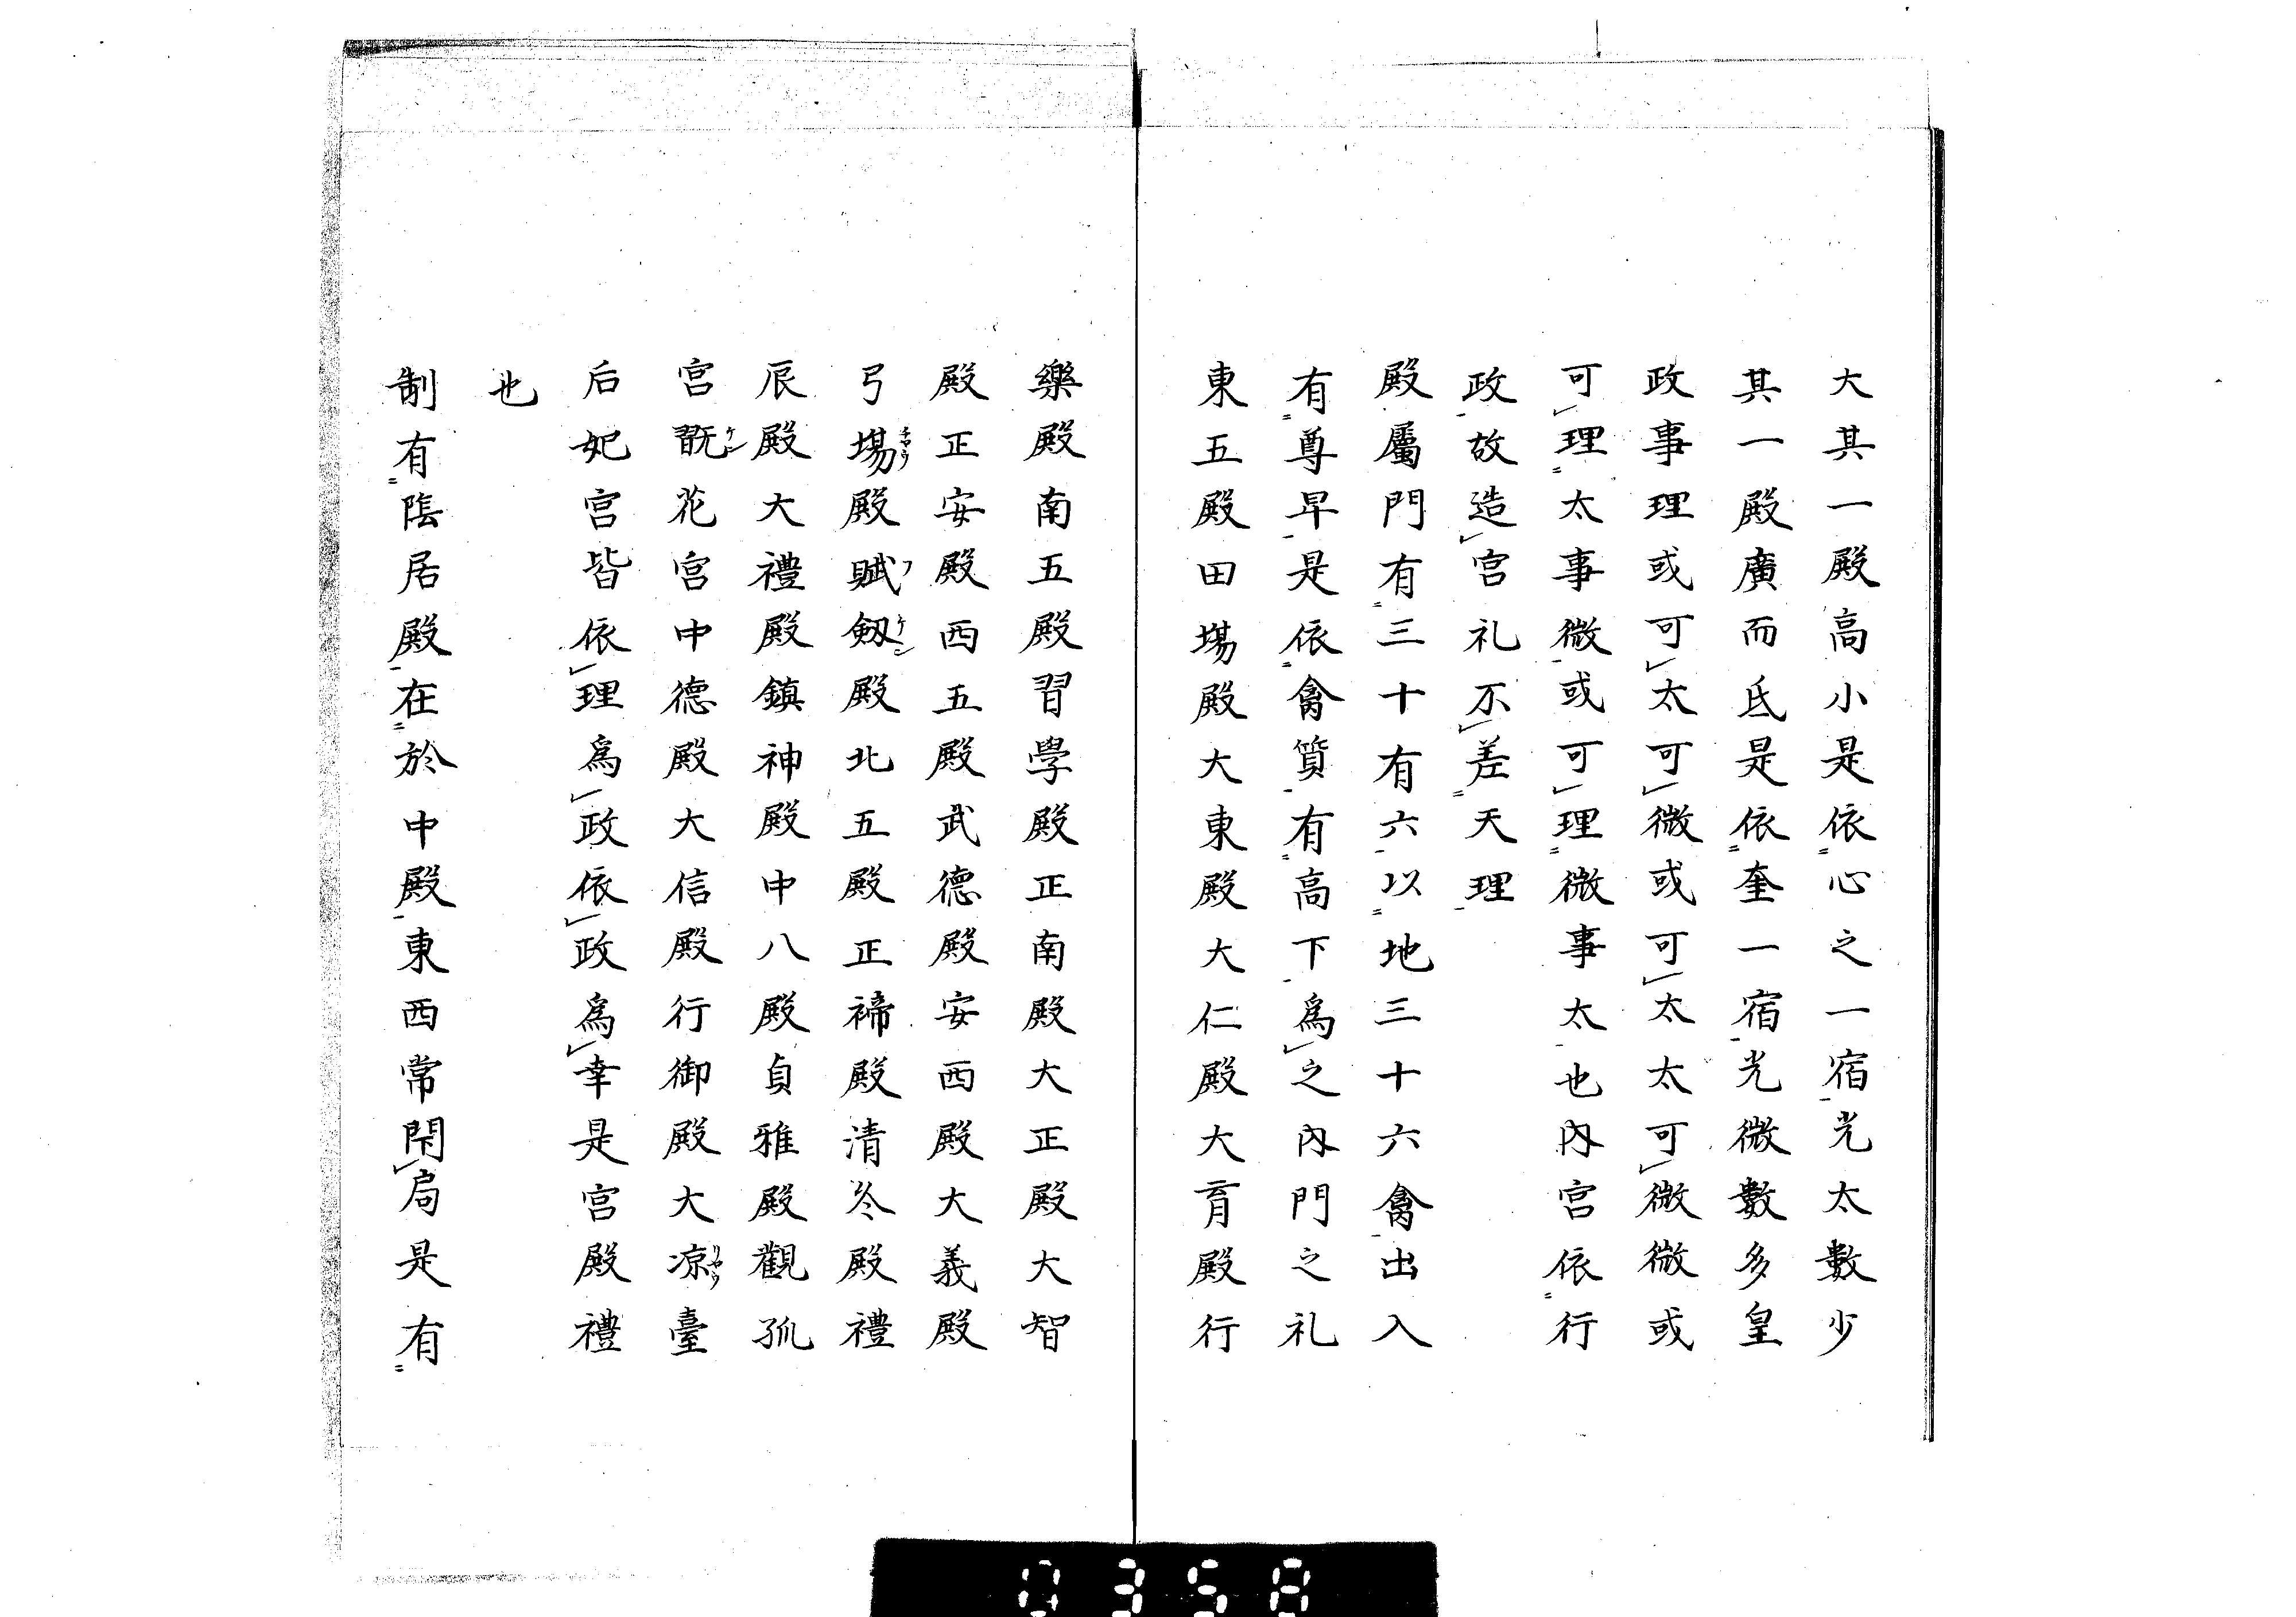 大其一殿高小是依心之一宿光太數少
其一殿廣而氐是依奎一宿光微數多皇
政事理或可太可微或可太太可微微或
可理太事微或可理微事太也內宮依行
政故造宮礼不差天理
殿屬門有三十有六以地三十六禽出入
有尊早是依禽質有高下為之內門之礼
東五殿田場殿大東殿大仁殿大育殿行
樂殿南五殿習學殿正南殿大正殿大智
殿正安殿西五殿武德殿安西殿大義殿
弓場チヤウ殿賦フ劔ケン殿北五殿正禘殿清冷殿禮
辰殿大禮殿鎮神殿中八殿貞雅殿觀
宮翫ケン花宮中德殿大信殿行御殿大凉リヤウ臺
后妃宮皆依理為政依政為幸是宮殿禮
也
制有陰居殿在於中殿東西常閇局是有
0358